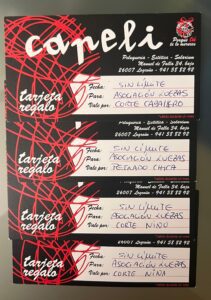 capeli
Porque tú
te lo mereces
Peluquería - Estética - Solarium
Manuel de Falla 34, bajo
26007 Logroño - 941 58 82 92
tarjeta
regalo
Fecha: SIN LÍMITE
Para: ASOCIACIÓN
Vale por: CORTE CABALLERO
Peluquería - Estética - Solarium
Manuel de Falla 34, bajo
26007 Logroño - 941 58 82 92
tarjeta
regalo
Fecha: SIN LÍMITE
Para: ASOCIACIÓN
Vale por: PEINADO CHICA
Manuel de Falla 34, bajo
26007 Logroño - 941 58 82 92
tarjeta
regalo
Fecha: SIN LÍMITE
Para: ASOCIACIÓN
Vale por: CORTE NIÑO
26007 Logroño - 941 58 82 92
tarjeta
regalo
Fecha: SIN LÍMITE
Para: ASOCIACIÓN
Vale por: CORTE NIÑA